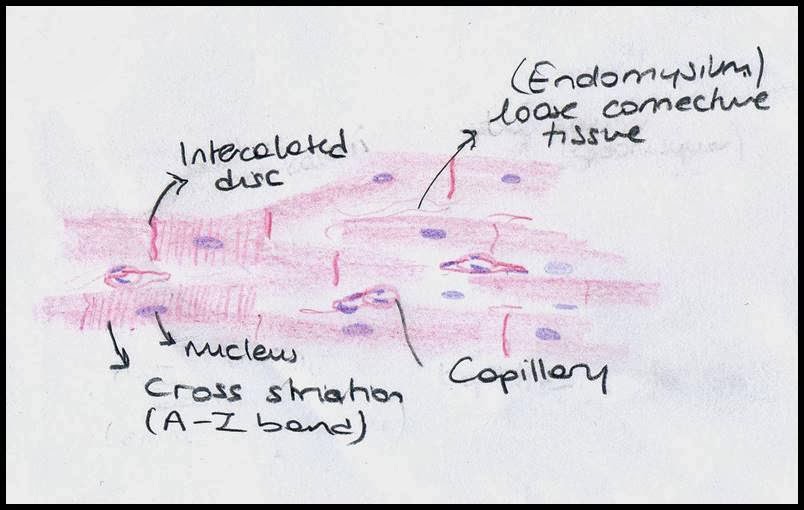 (Endomysium)
loose connective
tissue
Intercalated
disc
nucleus
Capillary
Cross striation
(A-I band)